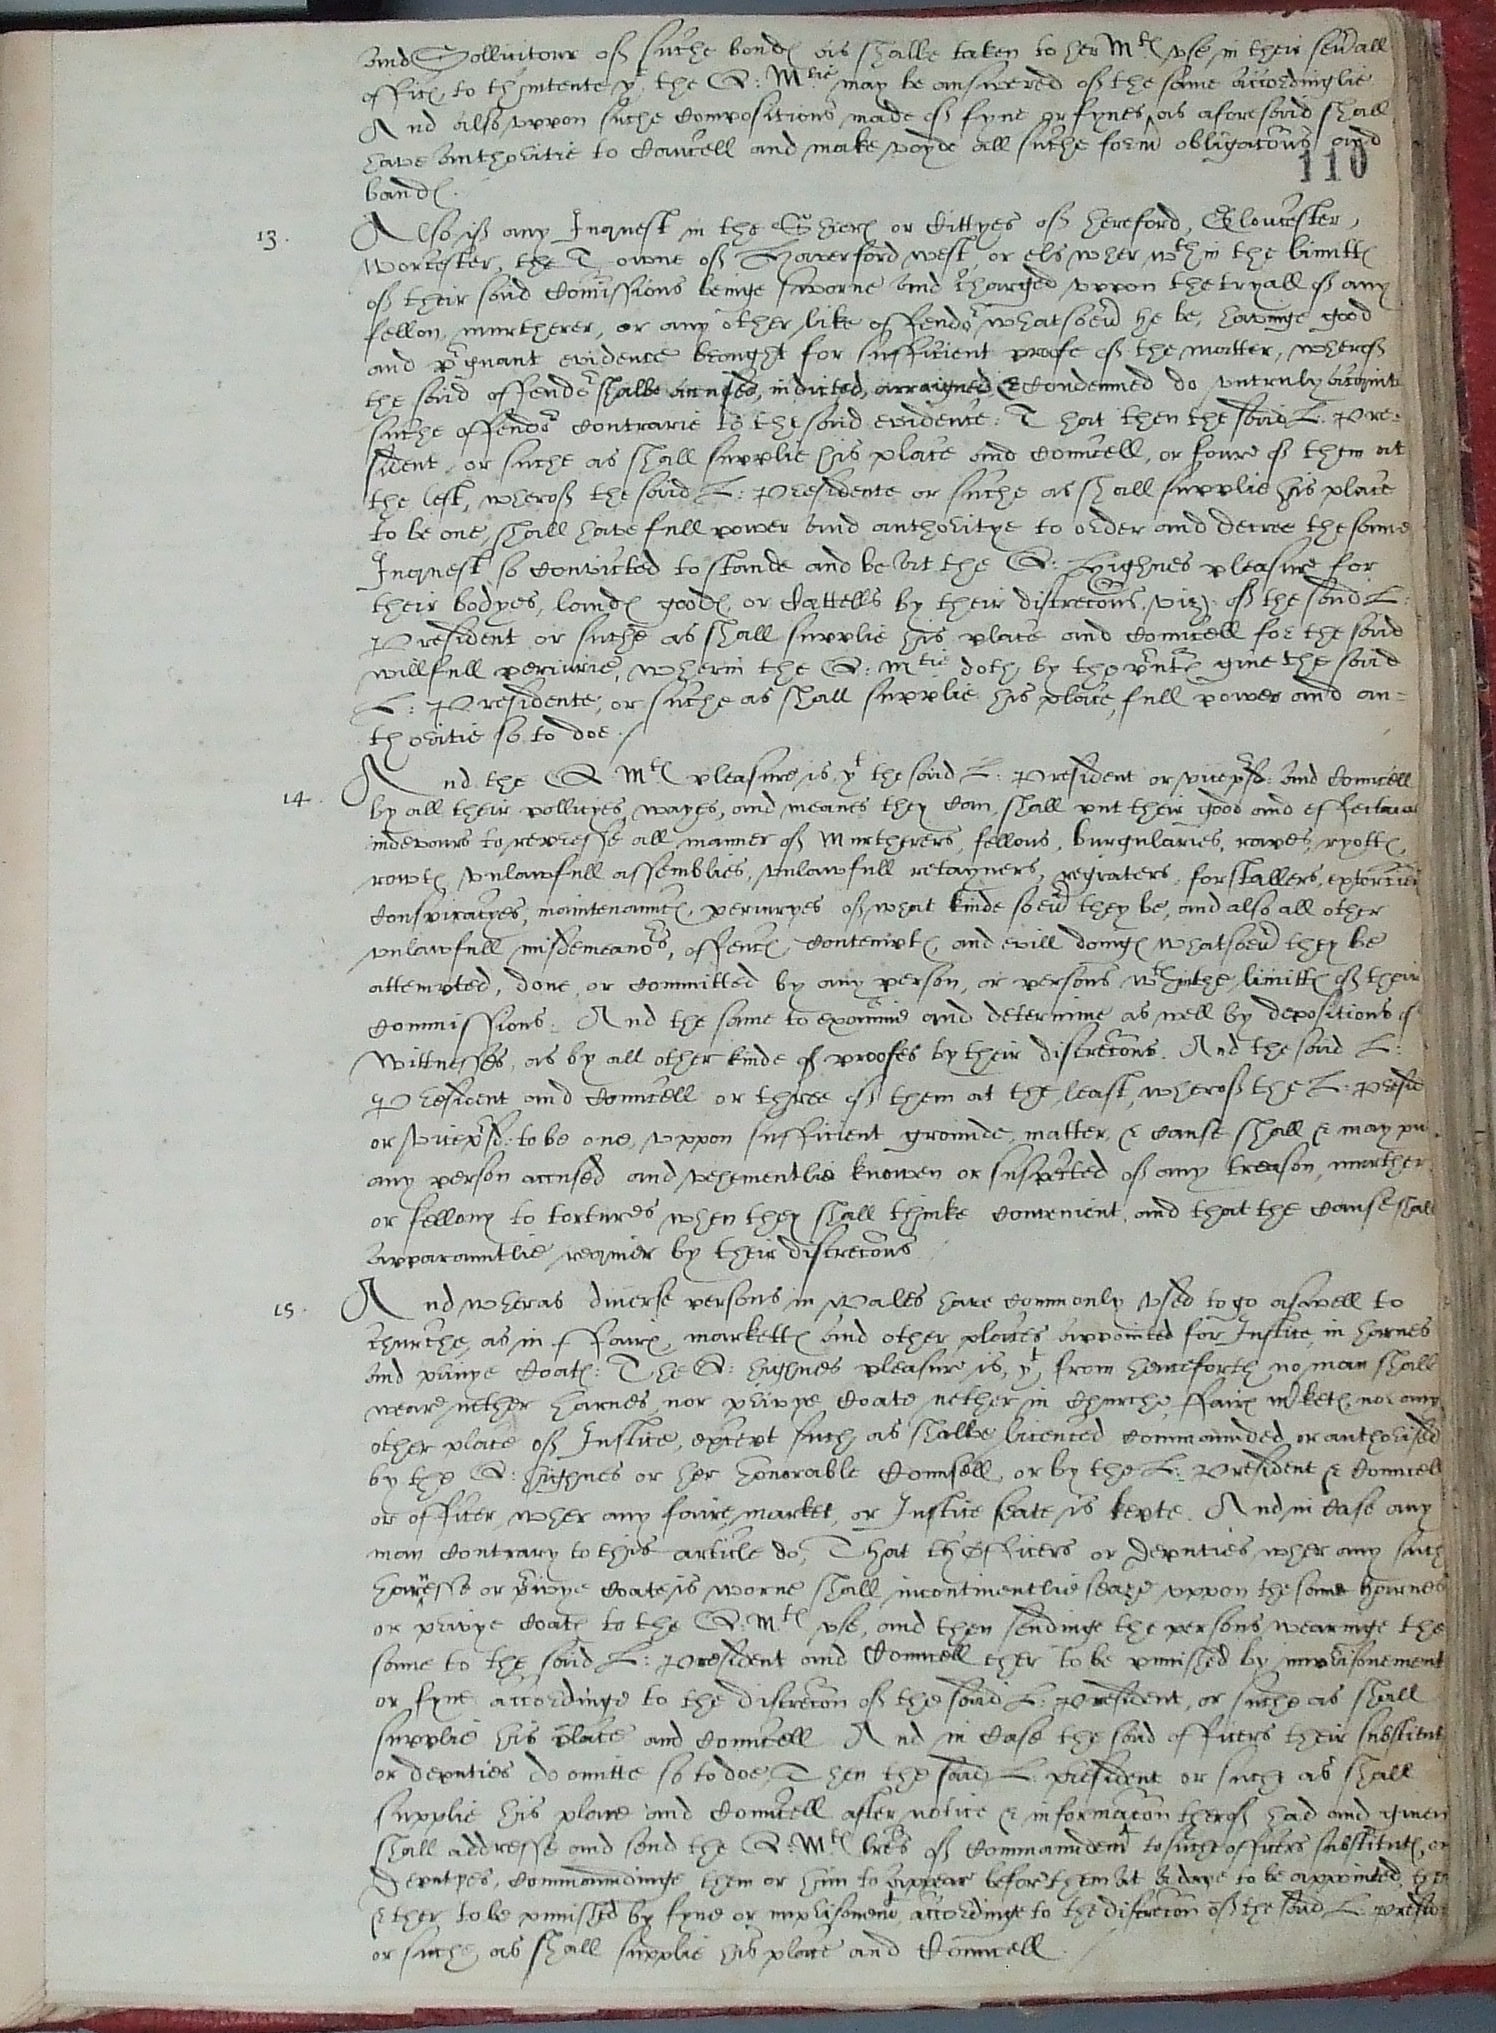 and Sollicitour of suche bondes as shalbe taken to her Mtes vse in their seuall
offices to thintente yt the Q: Mtie may be answered of the same accordinglie
And also vppon suche Compositions made of fyne or fynes, as aforesaid shall
have authoritie to Cancell and make voyde all suche form obligacons and
110
bandes.
13. Also if any Inquest in the Shiers or Cittyes of Hereford, Gloucester,
Worcester, the Towne of Haverford west, or els wher wthin the limittes
of their said Comissions beinge sworne and charged vppon the tryall of any
fellon, murtherer, or any other like offendor whatsoeu he be, havinge good
and pregnant evidence brought for sufficient profe of the matter, wherof
the said offendor shalbe accused, indicted, arraigned, & Condemned do vntruly acquite
suche offendor Contrarie to the said evidence: That then the said L: Pre-
sident, or suche as shall supplie his place and Councell, or foure of them at
the lest, wherof the said L: Presidente or suche as shall supplie his place
to be one, shall have full power and authoritye to order and decree the same
Inquest so Convicted to stande and be at the Q: Highnes pleasure for
their bodyes, landes goodes, or Cattells by their discrecons, viz. of the said L:
President or suche as shall supplie his place and Councell for the said
willfull periurie, wherin the Q: Mtie doth by the pntes giue the said
L: Presidente, or suche as shall supplie his place, full power and au-
thoritie so to doe./
14. And the Q Mtes pleasure is yt the said L: President or vicepsid: and Councell
by all their pollicyes, wayes, and meanes they Can, shall put their good and effectuall
indevours to represse all manner of Murtherers, fellons, burgularies, rapes, ryottes,
rowtes vnlawfull assemblies, vnlawfull retayners, regraters, forstallers, extorcions
Conspiracyes, maintenaunces, periuryes of what kinde soeu they be, and also all other
vnlawfull misdemeanors, offences, Contemptes, and evill doinges whatsoeu they be
attempted, done, or Committed by any person, or persons wthin the limittes of their
Commissions: And the same to examine and determine as well by depositions of
Wittnesses, as by all other kinde of proofes by their discrecons. And the said L:
President and Councell or three of them at the least, wherof the L: Preside
or vicepsid: to be one, vppon sufficient grounde, matter, & Cause shall & may pu
any person accused and vehementlie knowen or suspected of any treason, murther
or fellony to tortures when they shall thinke Convenient, and that the Cause shall
apparauntlie requier by their discrecons.
15. And wheras diuerse persons in Wales have Commonly vsed to go aswell to
churche, as in ffaires, markettes and other places appointed for Iustice, in harnes
and privye Coates: The Q: highnes pleasure is, yt from henceforth no man shall
weare nether harnes nor privye Coate nether in Churche, ffaires mketes nor any
other place of Iustice, except such as shalbe licenced Commaunded or authorised
by the Q: highnes or her honorable Counsell, or by the L: President & Councell
or officer, wher any faire, market, or Iustice seate is kepte. And in Case any
man Contrary to this article do, That thofficers or deputies wher any such
harnesse or privye Coate is worne shall incontinentlie sease vppon the same harnes
or privye Coates to the Q: Mtes vse, and then sendinge the persons wearinge the
same to the said L: President and Councell ther to be punished by imprisonement
or fyne accordinge to the discrecon of the said L: President, or suche as shall
supplie his place and Councell And in Case the said officers their substitut
or deputies do omitte so to doe, Then the said L: president or such as shall
supplie his place and Councell after notice & informacon therof had and giuen
shall addresse and send the Q: Mtes lres of Commaundemt to such officers substitutes, or
Deputyes, Commaundinge them or him to appear befor them at a daye to be appointed, then
& ther to be punished by fyne or imprisonemt accordinge to the discrecon of the said L: preside
or suche as shall supplie his place and Councell.